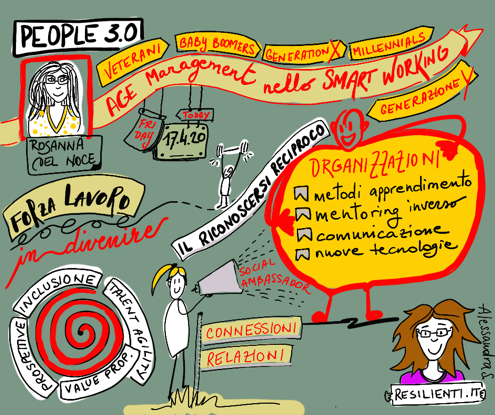 PEOPLE 3.0
VETERANI
BABY BOOMERS
GENERATION X
MILLENNIALS
AGE Management nello SMART WORKING
GENERAZIONE Y
ROSANNA
DEL NOCE
FRI
DAY
TODAY
17.4.20
FORZA LAVORO
in divenire
IL RICONOSCERSI RECIPROCO
ORGANIZZAZIONI
metodi apprendimento
mentoring inverso
comunicazione
nuove tecnologie
SOCIAL
AMBASSADOR
PROSPETTIVE
INCLUSIONE
TALENT AGILITY
VALUE PROP.
CONNESSIONI
RELAZIONI
Alessandra S.
RESILIENTI.IT